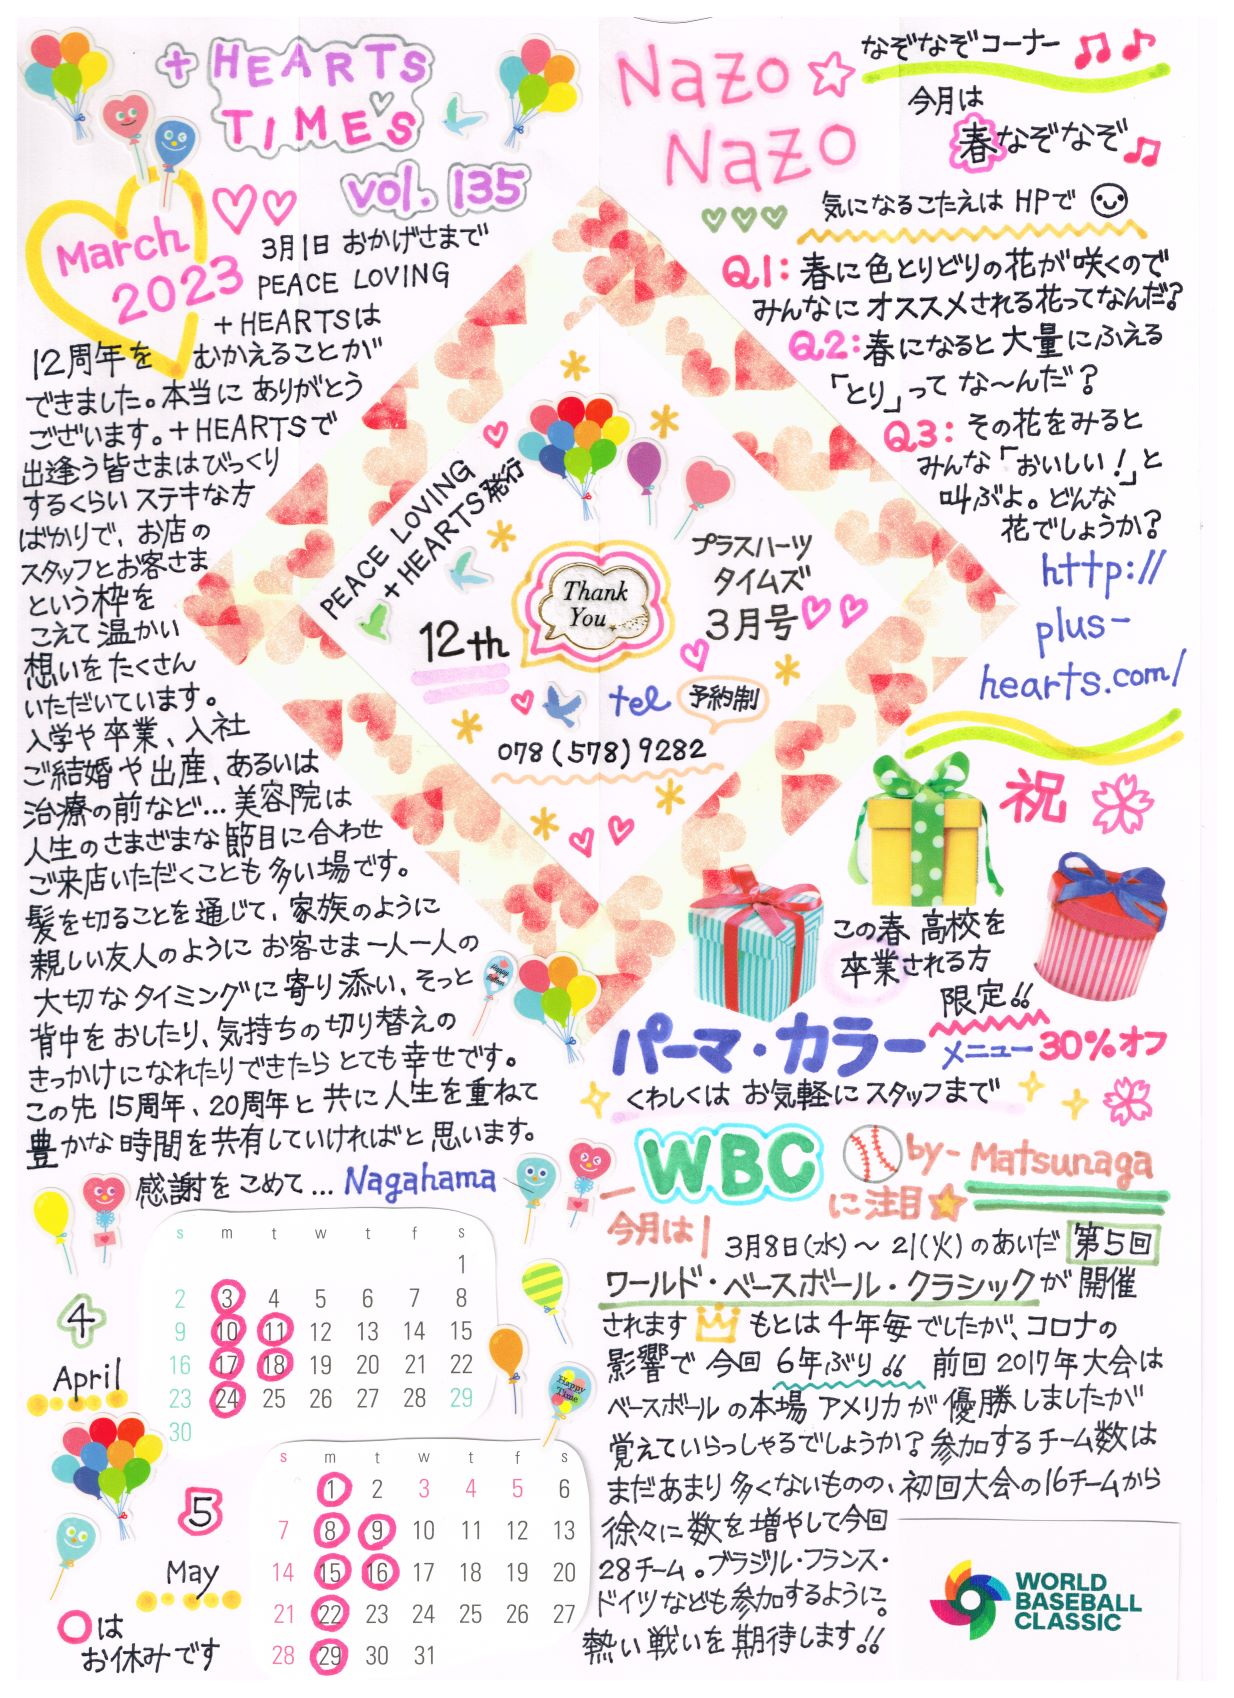 +HEARTS
TIMES
vol. 135
March
2023
3月1日 おかげさまで
PEACE LOVING
+HEARTSは
12周年を むかえることが
できました。本当に ありがとう
ございます。+HEARTSで
出逢う皆さまはびっくり
するくらい ステキな方
ばかりで、お店の
スタッフとお客さま
という枠を
こえて 温かい
想いを たくさん
いただいています。
入学や 卒業、入社
ご結婚や出産、あるいは
治療の前など…美容院は
人生のさまざまな節目に合わせ
ご来店いただくことも 多い場です。
髪を切ることを通じて、家族のように
親しい友人のように お客さま一人一人の
大切なタイミングに寄り添い、そっと
背中を おしたり、気持ちの切り替えの
きっかけになれたりできたら とても幸せです。
この先 15周年、20周年と 共に人生を重ねて
豊かな時間を共有していければと思います。
感謝をこめて… Nagahama
PEACE LOVING
+HEARTS発行
Thank
You
プラスハーツ
タイムズ
3月号
12th
tel 予約制
078(578)9282
Happy
Balloon
Nazo
Nazo
なぞなぞコーナー
今月は
春なぞなぞ
気になるこたえは HPで
Q1: 春に色とりどりの花が咲くので
みんなに オススメされる花ってなんだ?
Q2: 春になると 大量にふえる
「とり」って な〜んだ?
Q3: その花をみると
みんな「おいしい!」と
叫ぶよ。どんな
花でしょうか?
http://
plus-
hearts.com/
祝
この春 高校を
卒業される方
限定!!
パーマ・カラー メニュー 30%オフ
くわしくは お気軽に スタッフまで
WBC by-Matsunaga
に注目
今月は
3月8日(水)〜21(火)のあいだ 第5回
ワールド・ベースボール・クラシックが開催
されます もとは 4年毎でしたが、コロナの
影響で 今回 6年ぶり!! 前回 2017年大会は
ベースボールの本場 アメリカが 優勝しましたが
覚えていらっしゃるでしょうか? 参加するチーム数は
まだあまり 多くないものの、初回大会の16チームから
徐々に 数を増やして今回
28チーム。ブラジル・フランス・
ドイツなども参加するように。
熱い戦いを期待します!!
WORLD
BASEBALL
CLASSIC
4
April
s m t w t f s
1
2 3 4 5 6 7 8
9 10 11 12 13 14 15
16 17 18 19 20 21 22
23 24 25 26 27 28 29
30
Happy
Time
5
May
s m t w t f s
1 2 3 4 5 6
7 8 9 10 11 12 13
14 15 16 17 18 19 20
21 22 23 24 25 26 27
28 29 30 31
○は
お休みです